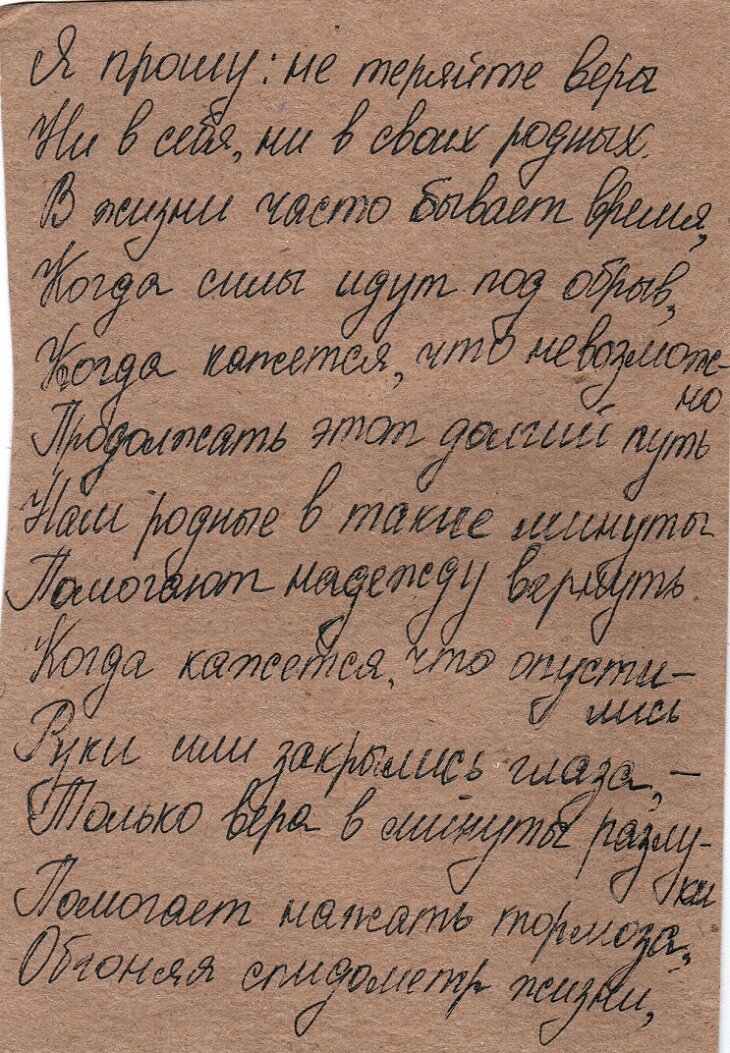 Я прошу: не теряйте веры
Ни в себя, ни в своих родных.
В жизни часто бывает время,
Когда силы идут под обрыв,
Когда кажется, что невозмож-
но
Продолжать этот долгий путь
Наш родные в такие минуты
Помогают надежду вернуть.
Когда кажется, что опусти-
лись
Руки или закрылись глаза, -
Только вера в минуты разлу-
ки
Помогает нажать тормоза.
Обгоняя спидометр жизни,